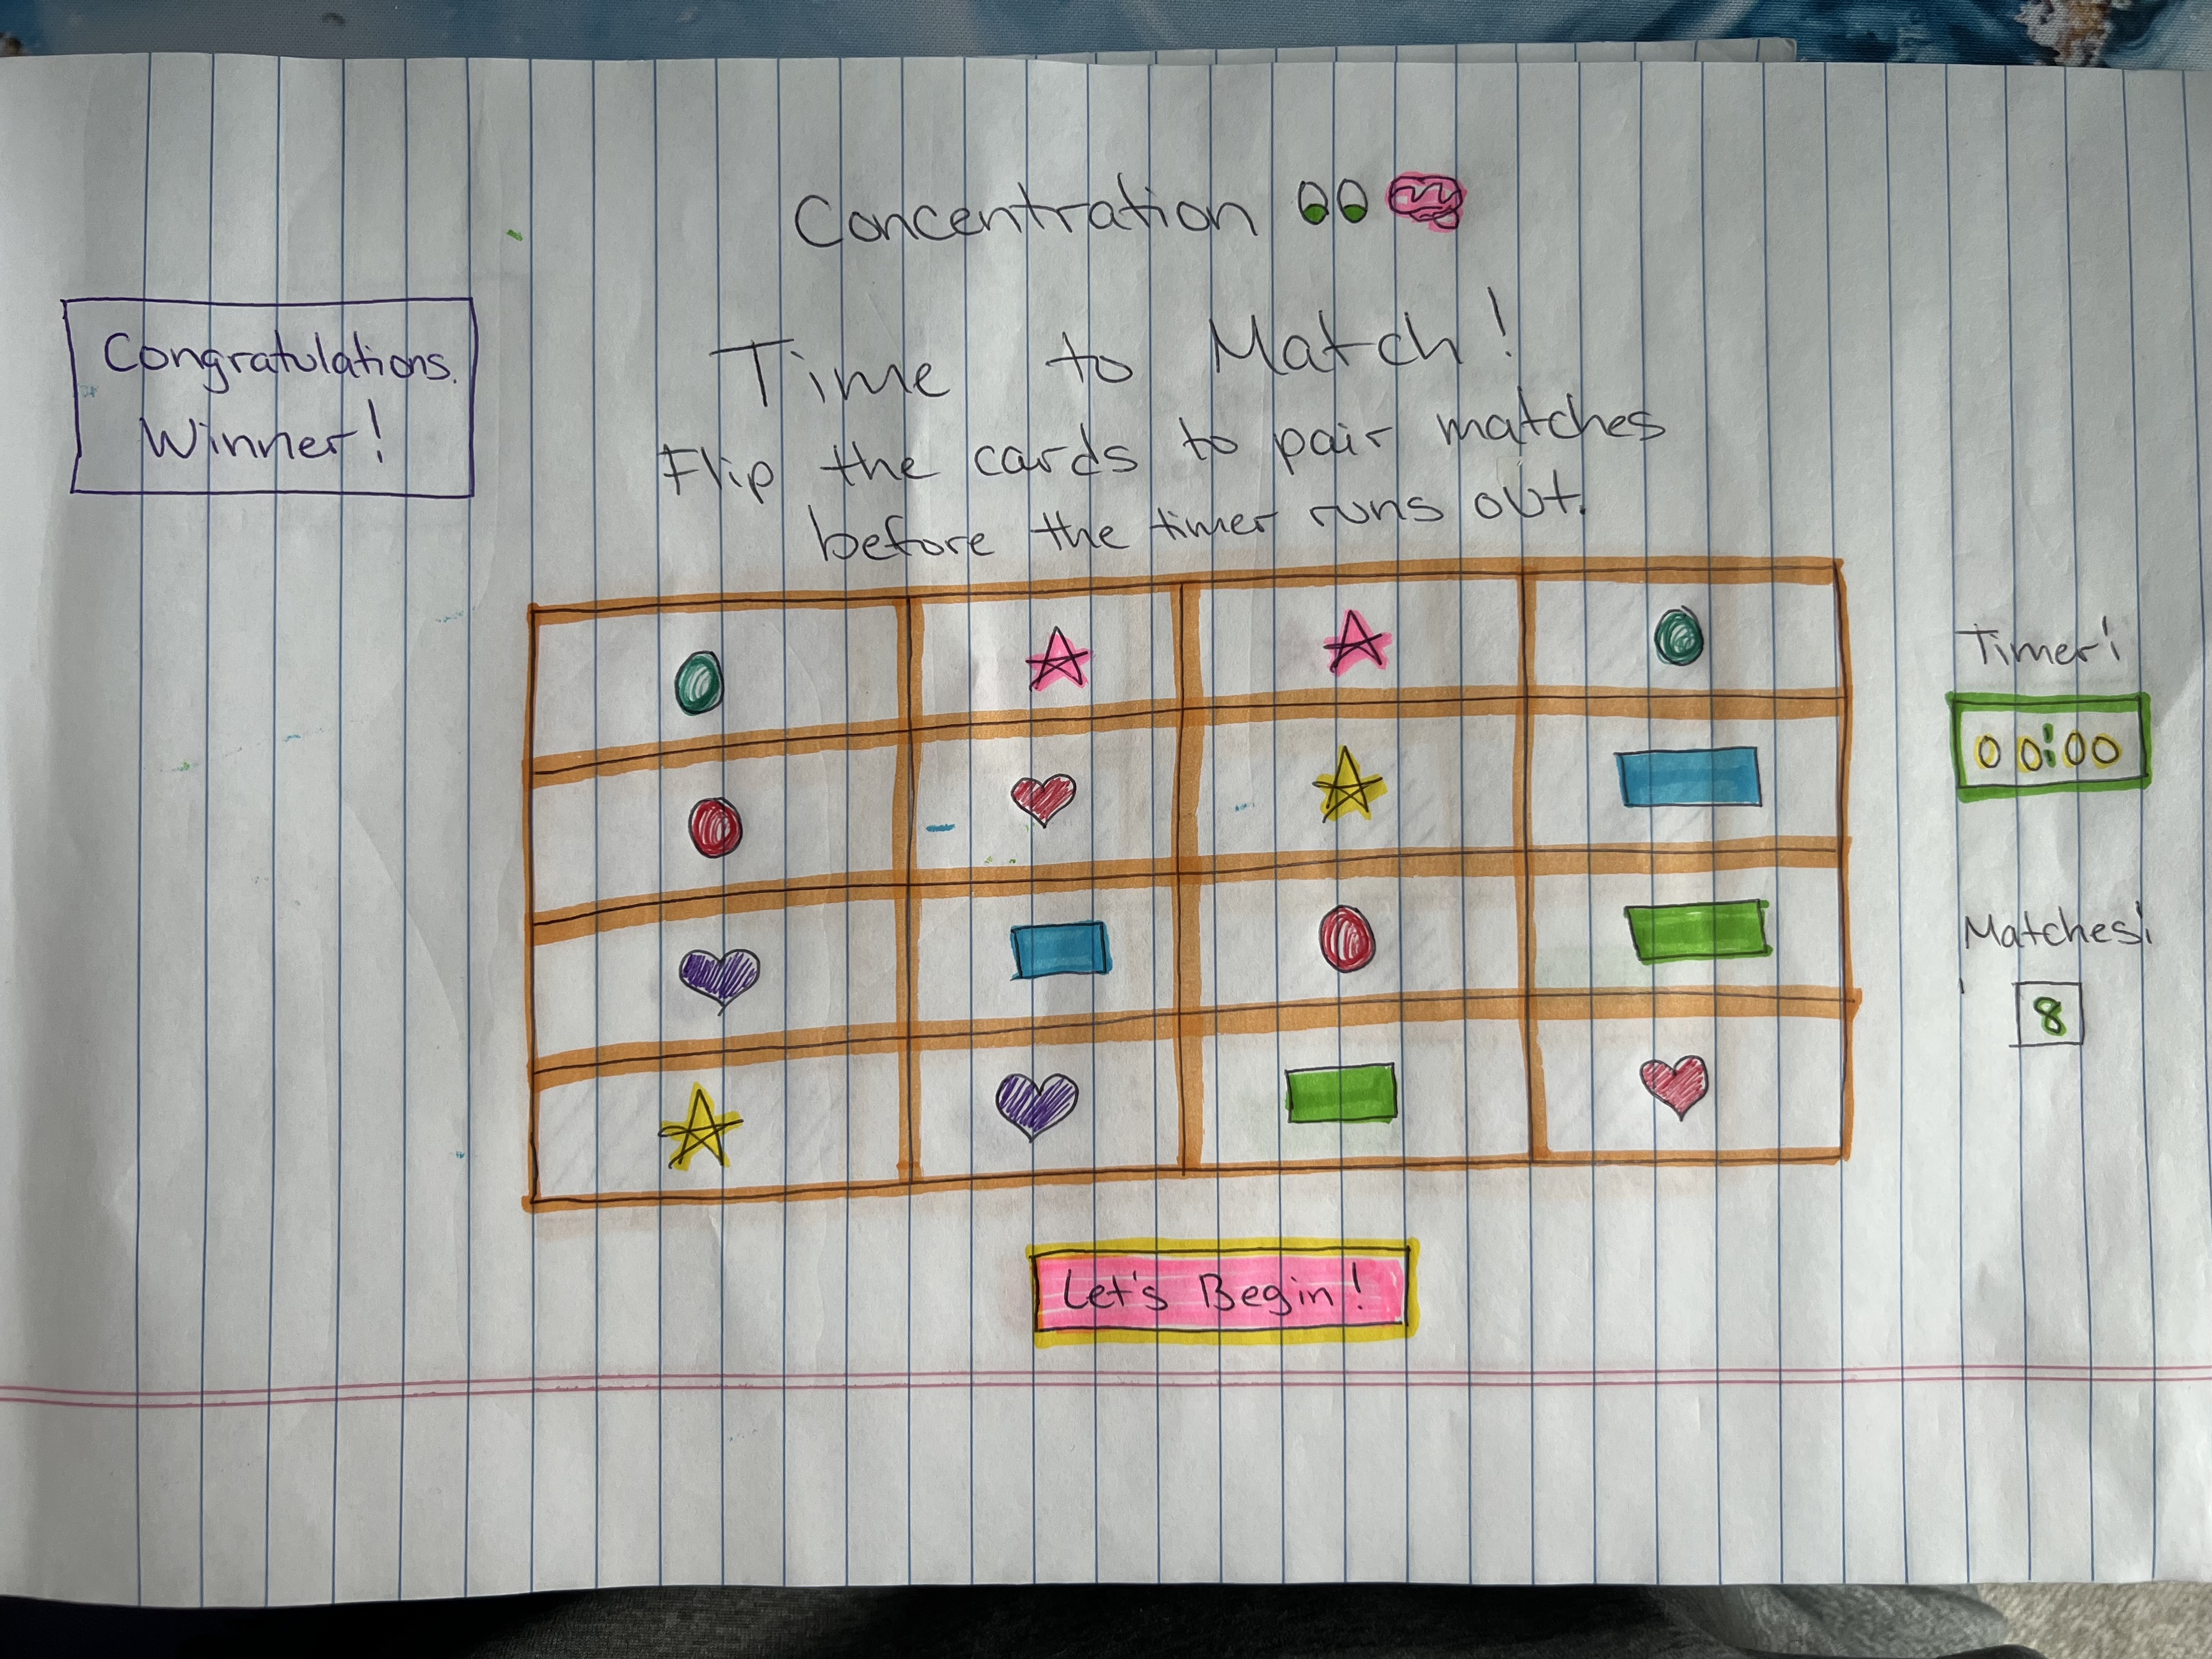 Concentration
Congratulations.
Winner!
Time to Match!
Flip the cards to pair matches
before the timer runs out.
Timer:
00:00
Matches:
8
Let's Begin!